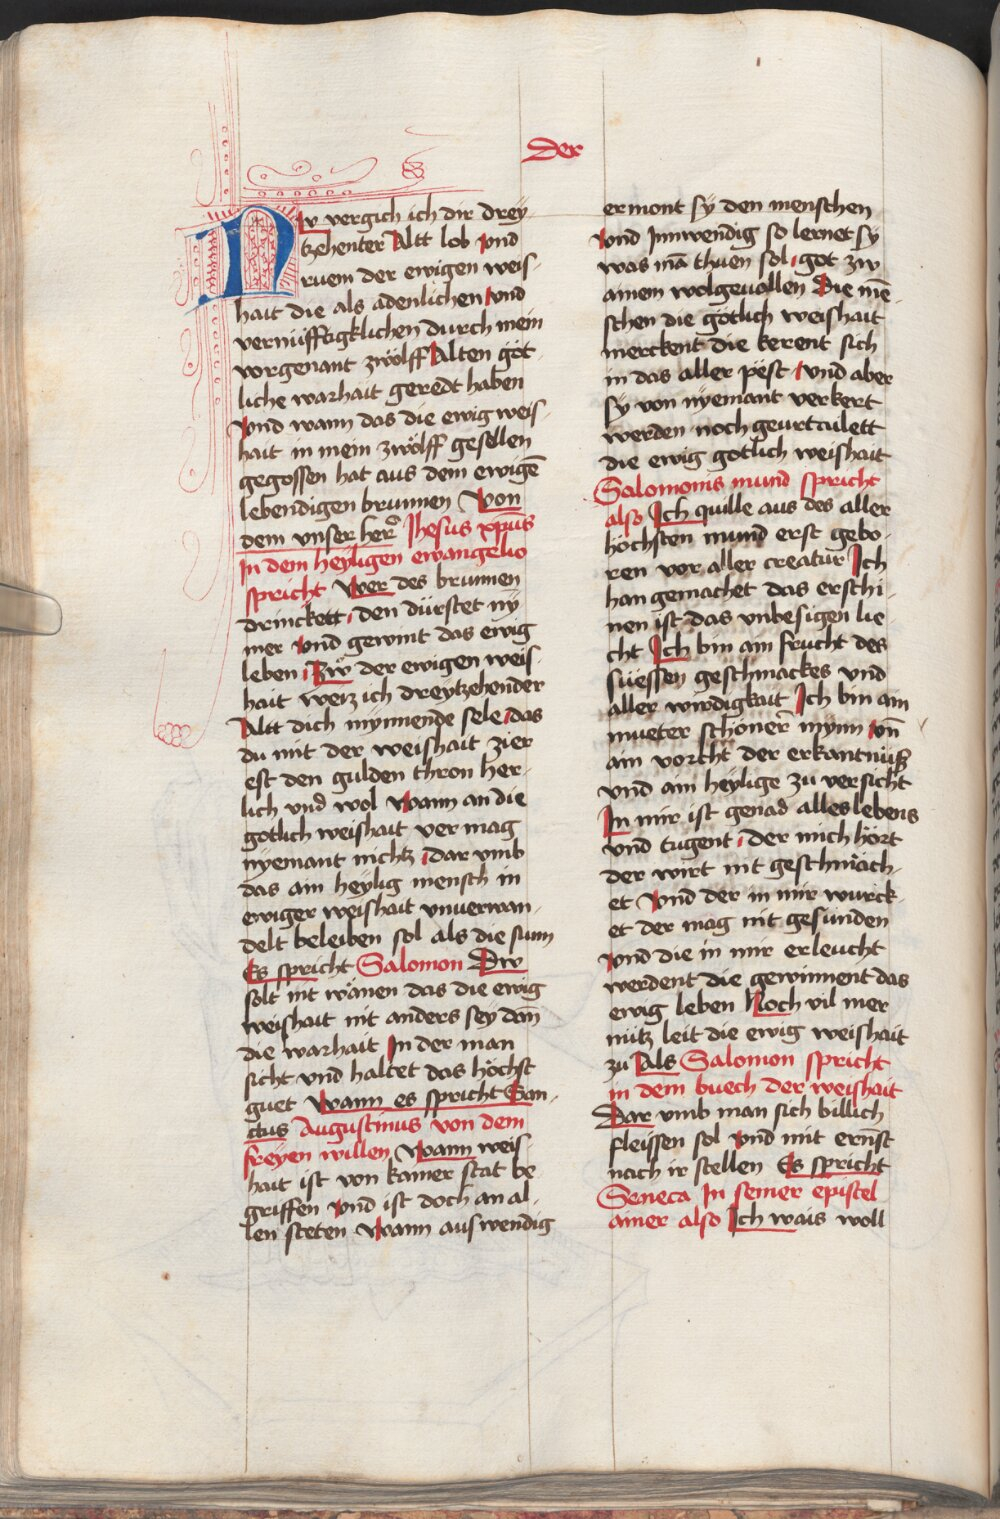 Der
Nw vergich ich dir drey-
tzehenter Altt lob vnd
ruem der ewigen weis-
hait die als adenlichen vnd
vernüfftigklichen durch mein
vorgenant zwölff Alten göt-
liche warhait geredt haben
Vnd wann das die ewig weis-
hait in mein zwölff gesellen
gegossen hat aus dem ewigē
lebendigen brunnen Von
dem vnser her̄ Jhesus xp̄us
In dem heyligen ewangelio
spricht Wer des brunnen
drinckett den dürstet ny
mer vnd gewint das ewig
leben Zw̆ der ewigen weis-
hait weiz ich dreytzehender
Altt dich mynnende sele das
du mit der weishait zier
est den gulden thron her-
lich vnd wol Wann an die
gotlich weishait ver mag
nyemant nichtz dar vmb
das ain heylig mensch in
ewiger weishait vnuerwan-
delt beleiben sol als die sunn
Es spricht Salomon Dw
solt nit wänen das die ewig
weishait nit anders sey dan̄
die warhait In der man
sicht vnd haltet das höchst
guet Wann es spricht San-
ctus Augustinus von dem
freyen willen Wann weis-
hait ist von kainer stat be
griffen Vnd ist doch an al-
len steten Wann auswendig
ermont sy den menschen
Vnd Innwendig so lernet sy
was mā thuen sol got zw
ainem wolgeuallen Die mē-
schen die götlich weishait
merckent die kerent sich
in das aller pëst vnd aber
sy von nyemant verkert
werden noch geurtailett
die ewig gotlich weishait
Salomonis mund spricht
also Ich quille aus des aller
höchsten mund erst gebo-
ren vor aller creatur Ich
han gemachet das erschi-
nen ist das vnbesigen lie
cht Ich bin ain frucht des
süessen geschmackes vnd
aller wirdigkait Ich bin ain
mueter schöner mynn vn̄
ain vorcht der erkantnüß
vnd ain heylige zu versicht
In mir ist genad alles lebens
vnd tugent der mich hört
der wirt nit geschmäch-
et Vnd der in mir wurck-
et der mag nit gesünden
Vnd die in mir erleucht
werdent die gewinnent das
ewig leben Noch vil mer
nütz leit die ewig weishait
zu Als Salomon spricht
in dem buech der weishait
Dar vmb man sich billich
fleissen sol vnd mit ernst
nach ir stellen Es spricht
Seneca In seiner epistel
ainer also Ich wais woll